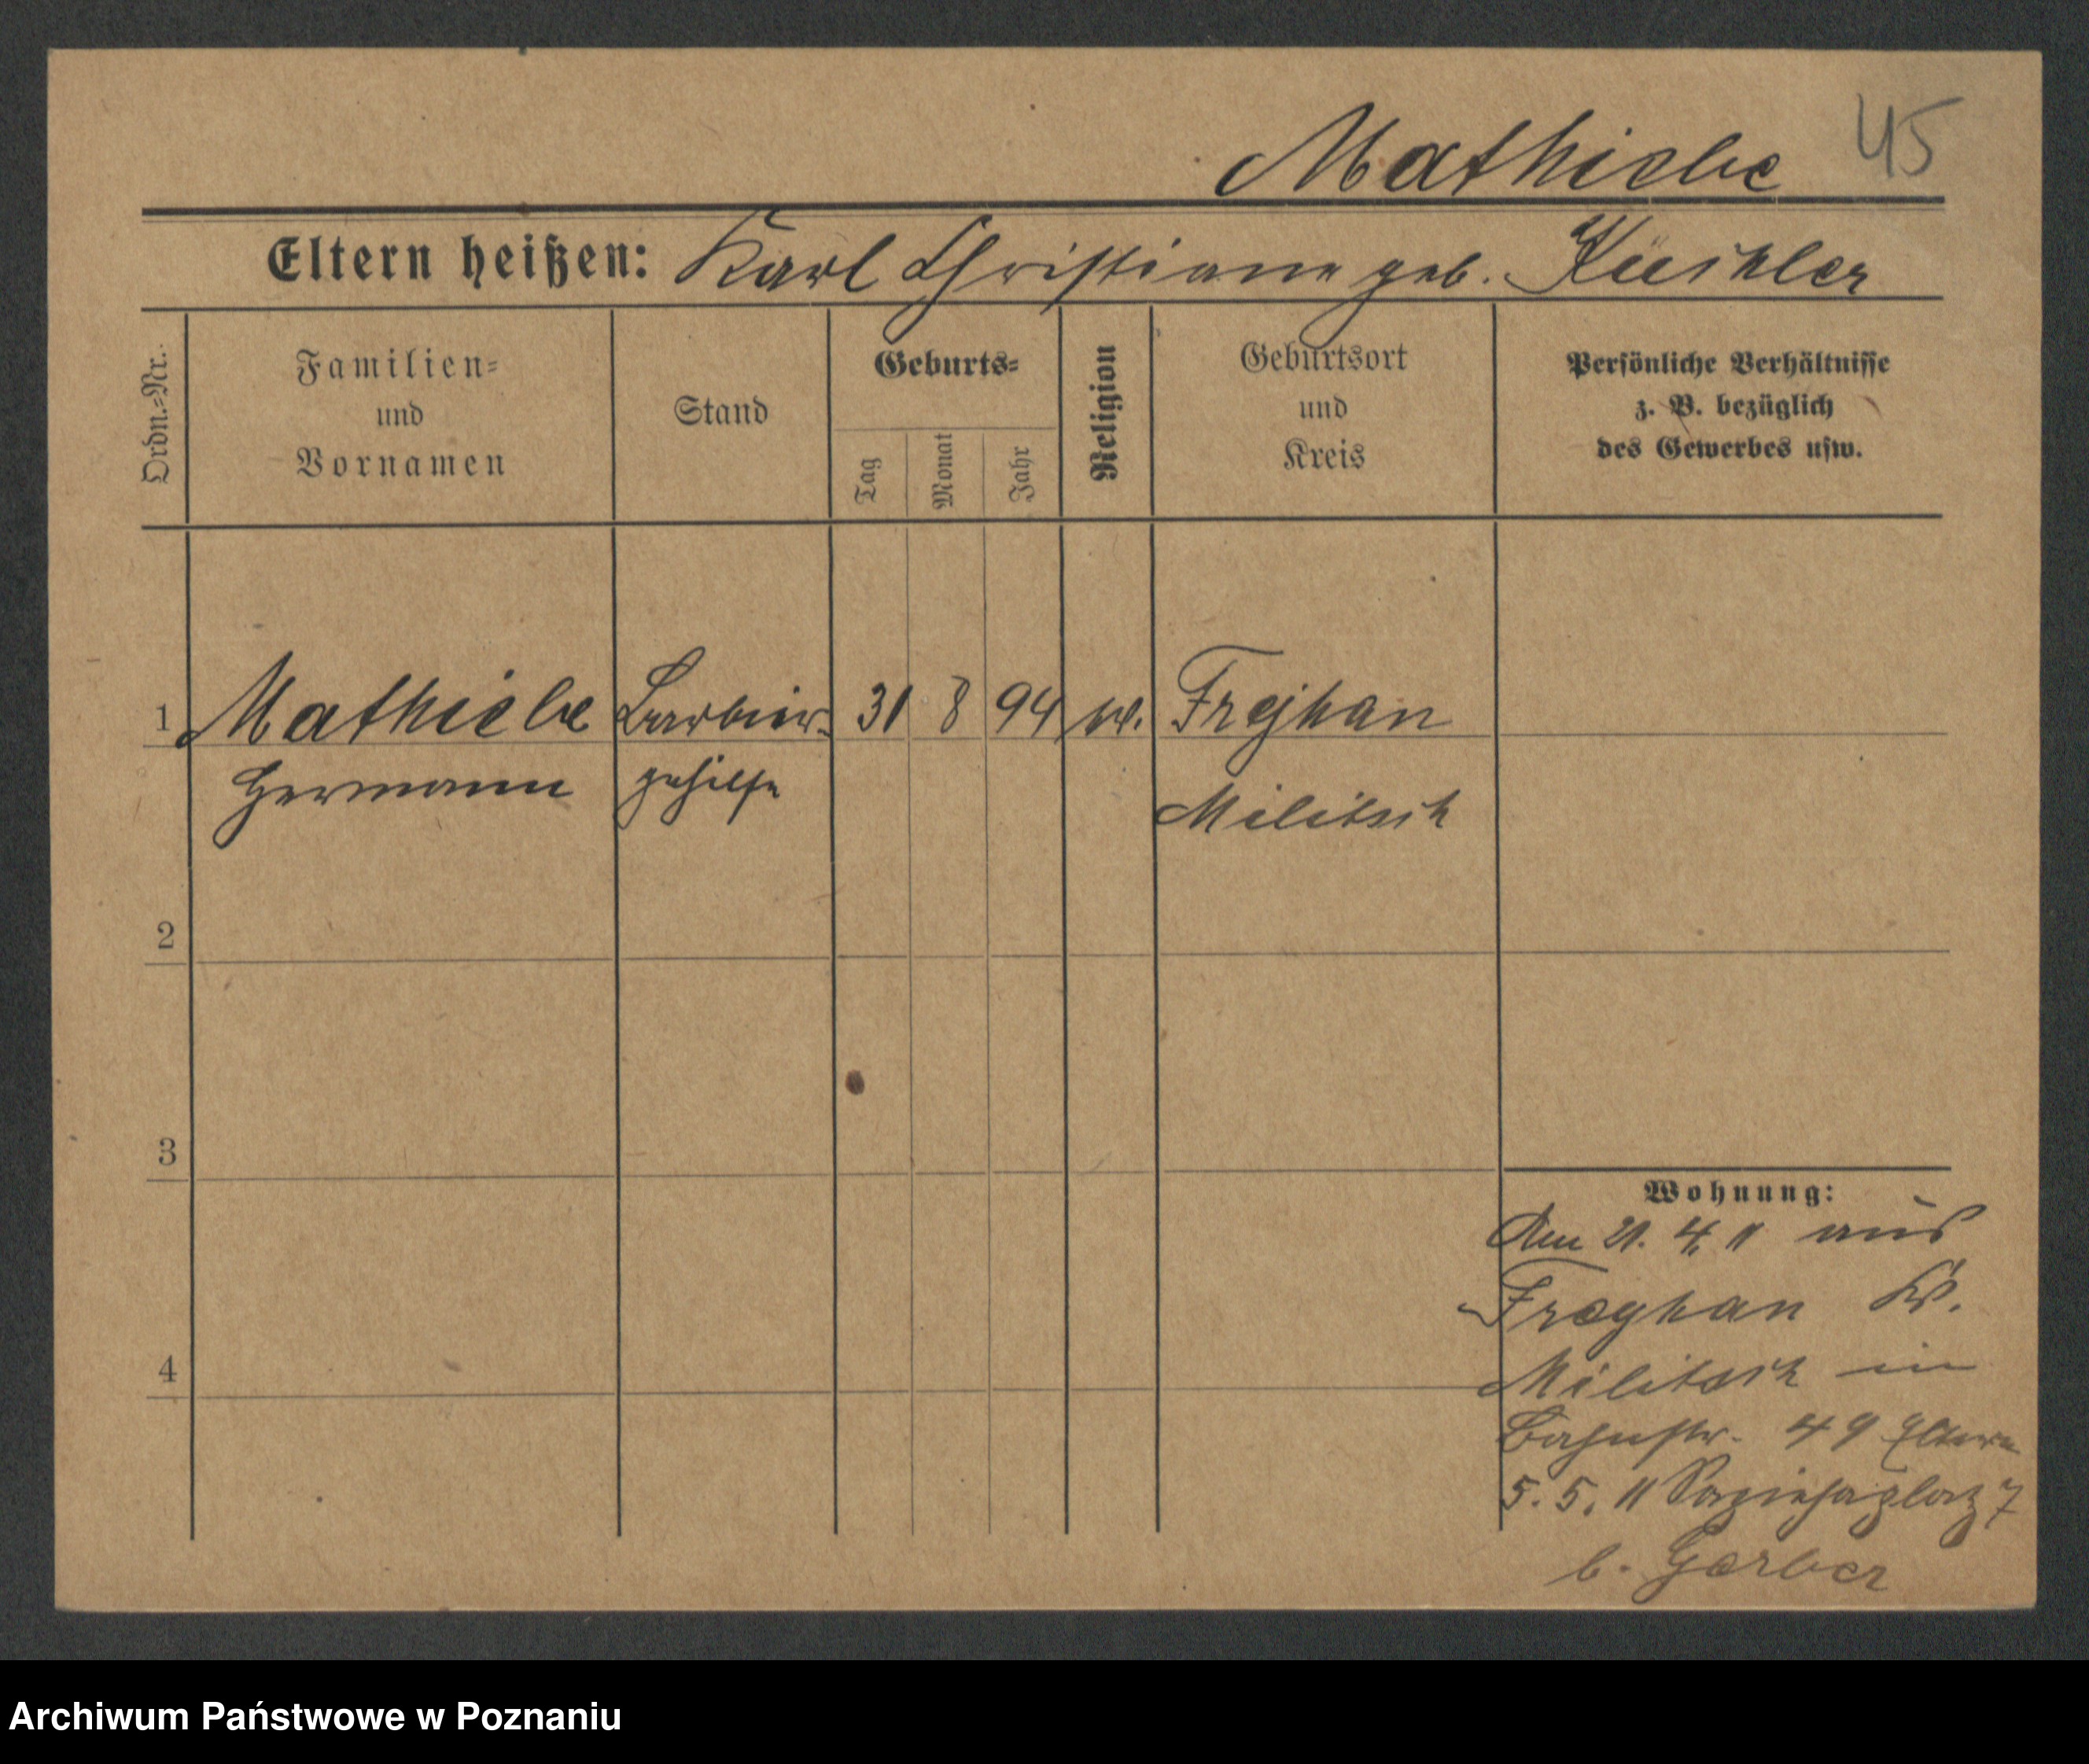 Mathiebe 45
Eltern heißen: Karl Christiane geb. Küchler
Ordn.-Nr.
Familien-
und
Vornamen
Stand
Geburts-
Tag
Monat
Jahr
Religion
Geburtsort
und
Kreis
Persönliche Verhältnisse
z. B. bezüglich
des Gewerbes usw.
1 Mathiebe Barbier- 31 8 94 ev. Frejhan
Hermann gehilfe Militsch
2
3
4
Wohnung:
Am 21. 4. 11 aus
Freyhan Kr.
Militsch in
Bahnstr. 49 Eltern
5. 5. 11 Sapiehaplatz 7
b. Gerber
Archiwum Państwowe w Poznaniu